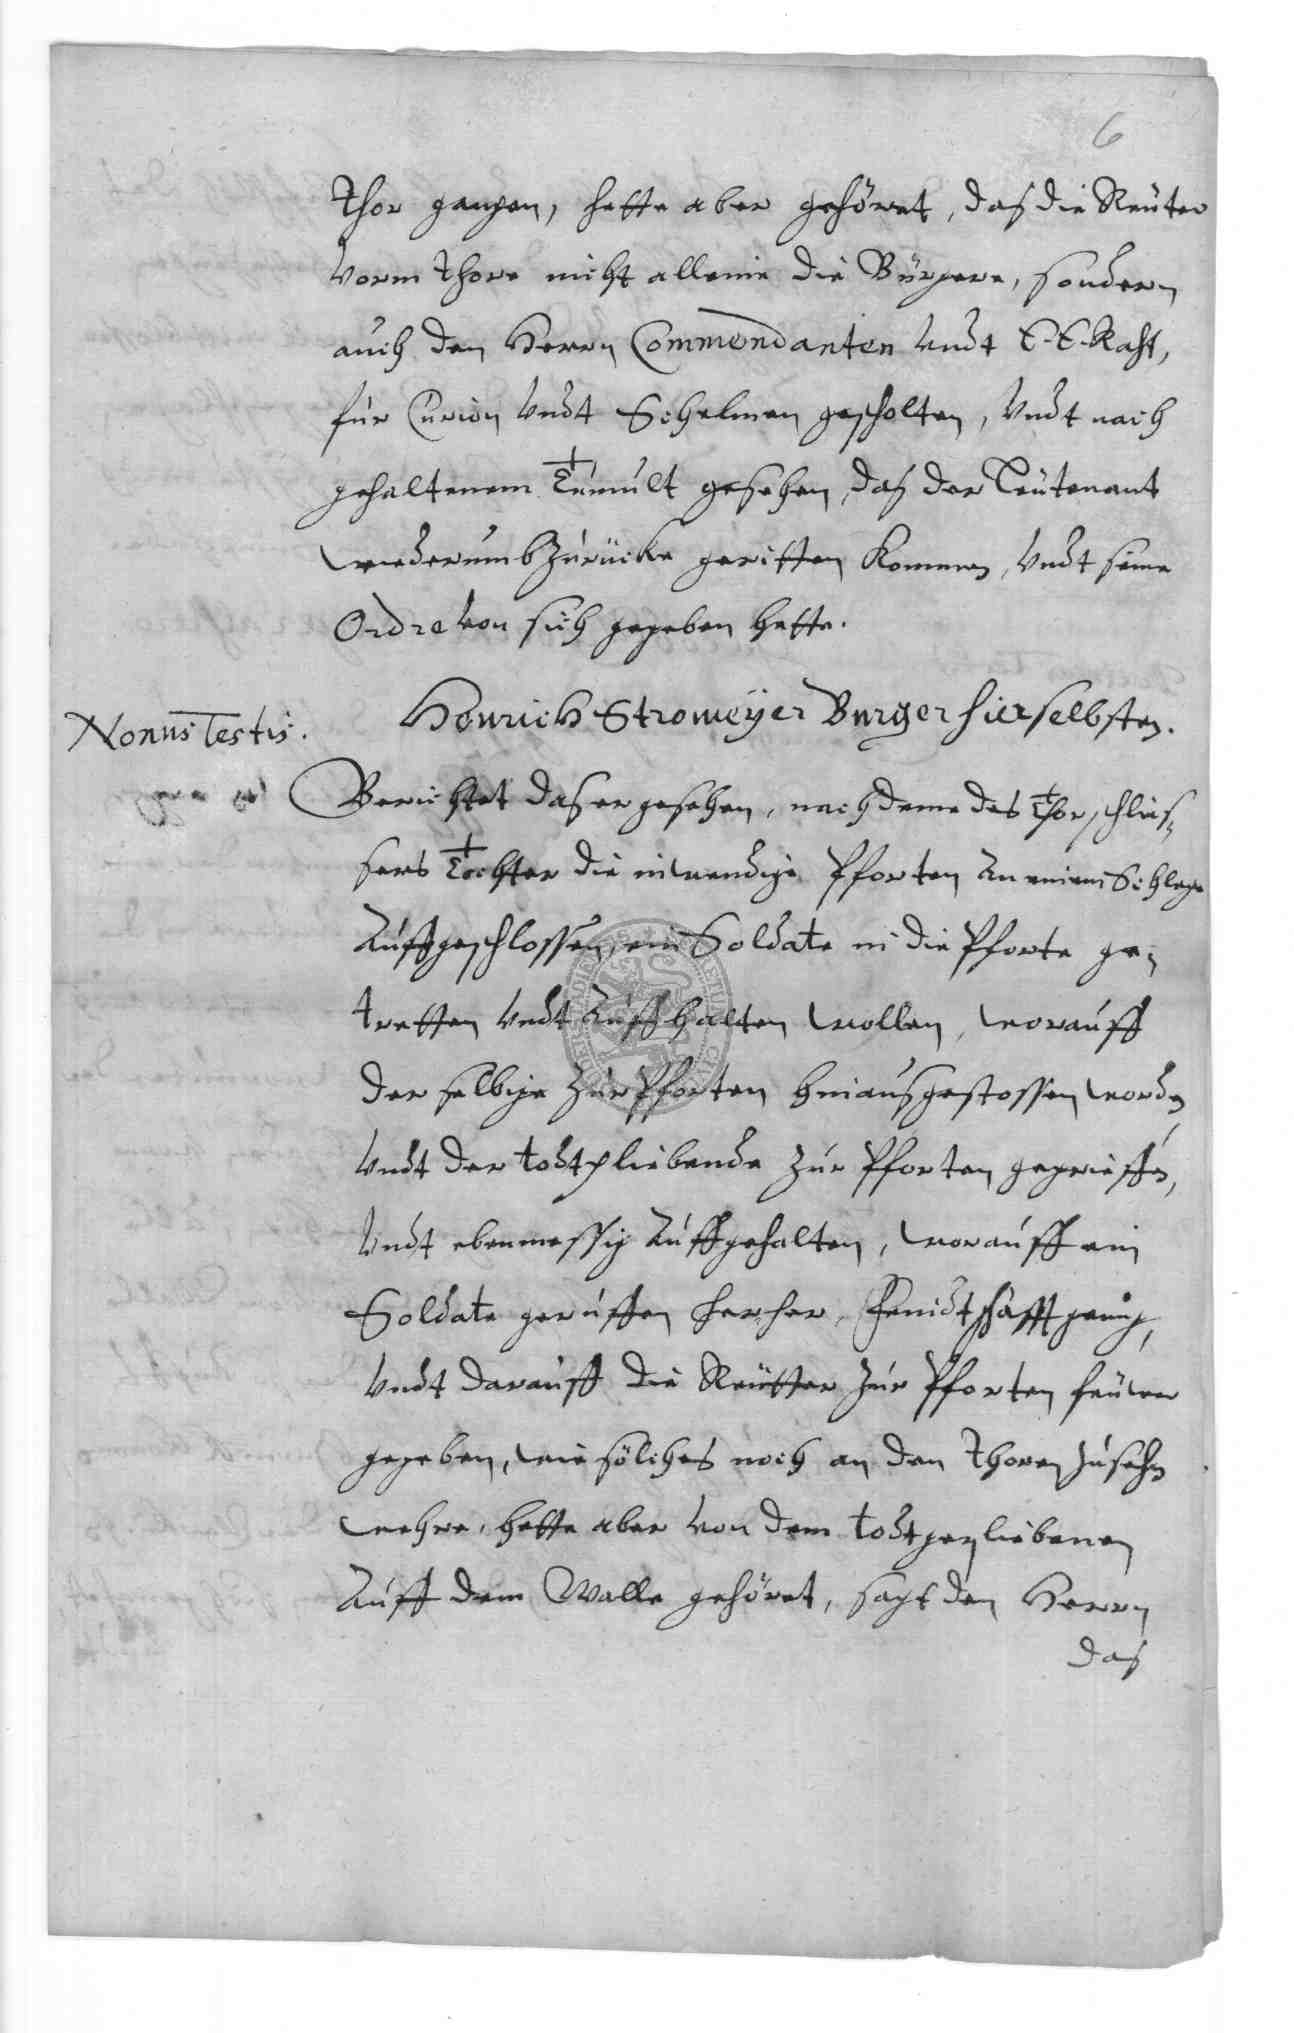 6
Thor gangen, hette aber gehöret, daß die Reuter
Vorm Thore nicht alleine die Bürgere, sondern
auch den Herrn Commendanten Vndt E. E. Raht,
für Curion Vndt Schelmen gescholten, Vndt nach
gehaltenem Tumult gesehen, daß der Leutenant
wiederumb Zurücke geritten kommen, Vndt seine
Ordre von sich gegeben hette.
Nonus Testis.
Henrich Stromeyer Burger hierselbsten.
Berichtet daß er gesehen, nach deme des Thorschlies-
sers Tochter die inwendige Pforten an einem Schlage
Auffgeschlossen, ein Soldate in die Pforte ge-
tretten Vndt Auffhalten wollen, worauff
der selbige Zur Pforten hinaußgestossen worden
Vndt der todtpliebende Zur Pforten gegrieffen,
Vndt ebenmessig Auffgehalten, worauff ein
Soldate geruffen herher, Feindtschafft genug,
Vndt darauff die Reutter Zur Pforten feuwer
gegeben, wie sölches noch an den Thoren Zusehen
wehre, hette aber von dem todtgepliebenen
Auff dem Walle gehöret, sagt den Herrn
daß